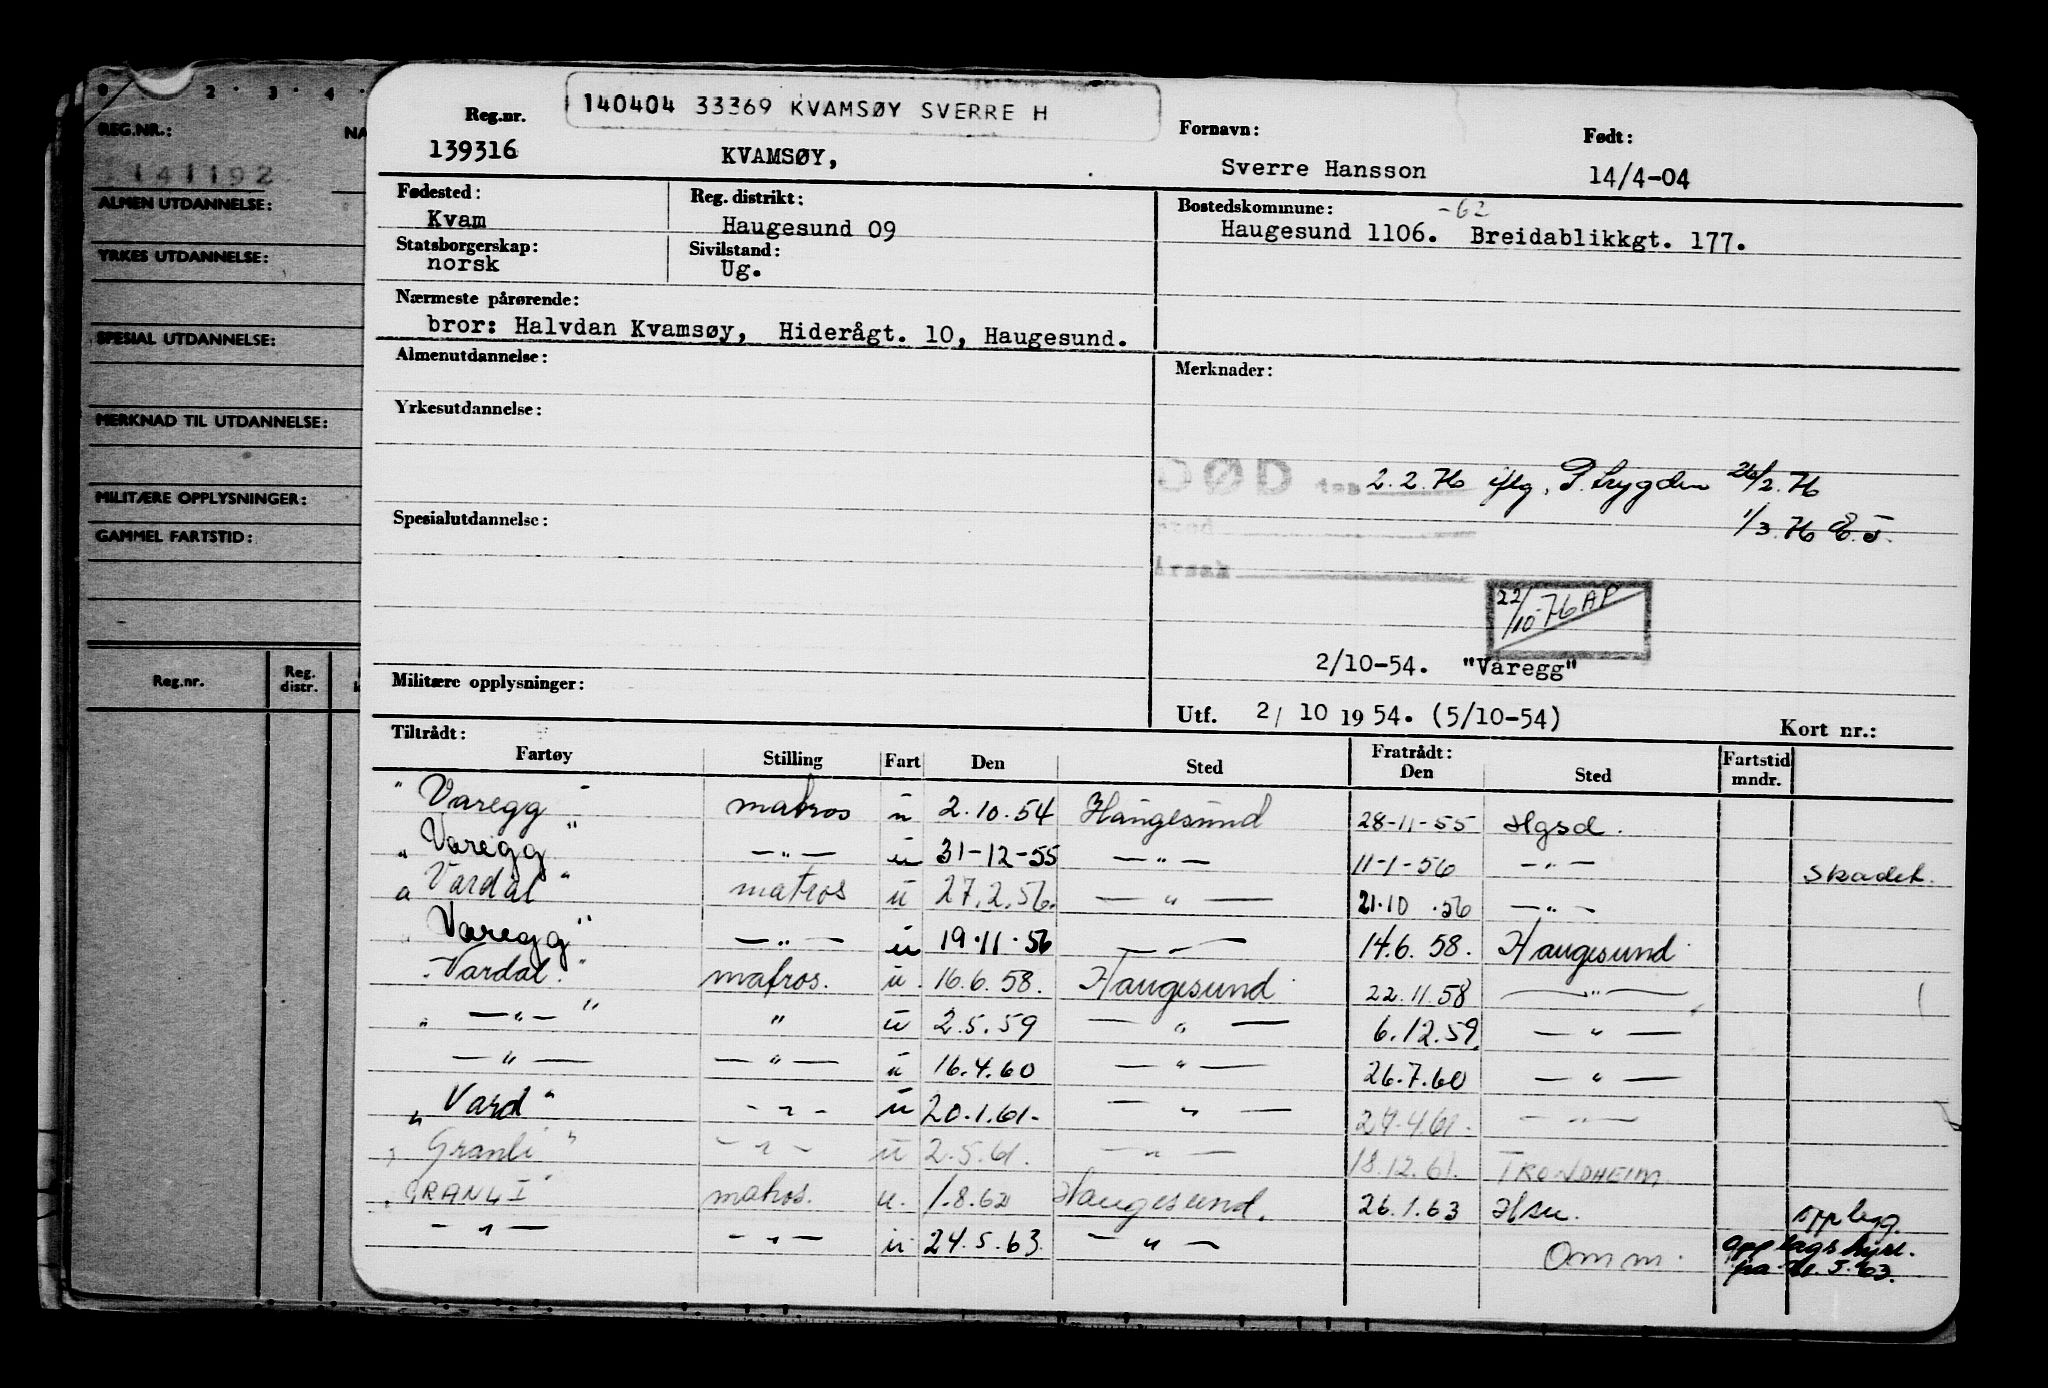 2 . 3 . 4 .
REG.NR.:
141192
ALMEN UTDANNELSE:
YRKES UTDANNELSE:
SPESIAL UTDANNELSE:
MERKNAD TIL UTDANNELSE:
MILITÆRE OPPLYSNINGER:
GAMMEL FARTSTID:
Reg.nr. Reg. distr.
140404 33369 KVAMSØY SVERRE H
Reg.nr. Fornavn: Født:
139316 KVAMSØY, Sverre Hansson 14/4-04
Fødested: Reg. distrikt: Bostedskommune: -62
Kvam Haugesund 09 Haugesund 1106. Breidablikkgt. 177.
Statsborgerskap: Sivilstand:
norsk Ug.
Nærmeste pårørende:
bror: Halvdan Kvamsøy, Hiderågt. 10, Haugesund.
Almenutdannelse: Merknader:
Yrkesutdannelse:
DØD den 2.2.76 iflg. P.trygden 26/2.76
Sted 1/3.76
Årsak
Spesialutdannelse:
22/10-76 AP
2/10-54. "Varegg"
Militære opplysninger:
Utf. 2/ 10 19 54. (5/10-54) Kort nr.:
Tiltrådt: Fratrådt:
Fartøy Stilling Fart Den Sted Den Sted Fartstid mndr.
"Varegg" matros u 2.10.54 Haugesund 28-11-55 Hgsd.
"Varegg" —"— u 31-12-55 —"— 11-1-56 —"— skadet.
"Vardal" matros u 27.2.56. —"— 21.10.56 —"—
"Varegg" —"— u 19.11.56 —"— 14.6.58. Haugesund
"Vardal." matros. u. 16.6.58. Haugesund 22.11.58 —"—
" —"— " " u 2.5.59 —"— 6.12.59. —"—
—"— —"— u 16.4.60 —"— 26.7.60 —"—
"Vard" -"- u 20.1.61. —"— 24.4.61. —"—
"Granli" -"- u 2.5.61. —"— 18.12.61. TRONDHEIM
"GRANLI" matros. u. 1.8.62 Haugesund. 26.1.63 Hsu. opplegg.
—"— —"— u 24.5.63. —"— Omm. opplagshyre.